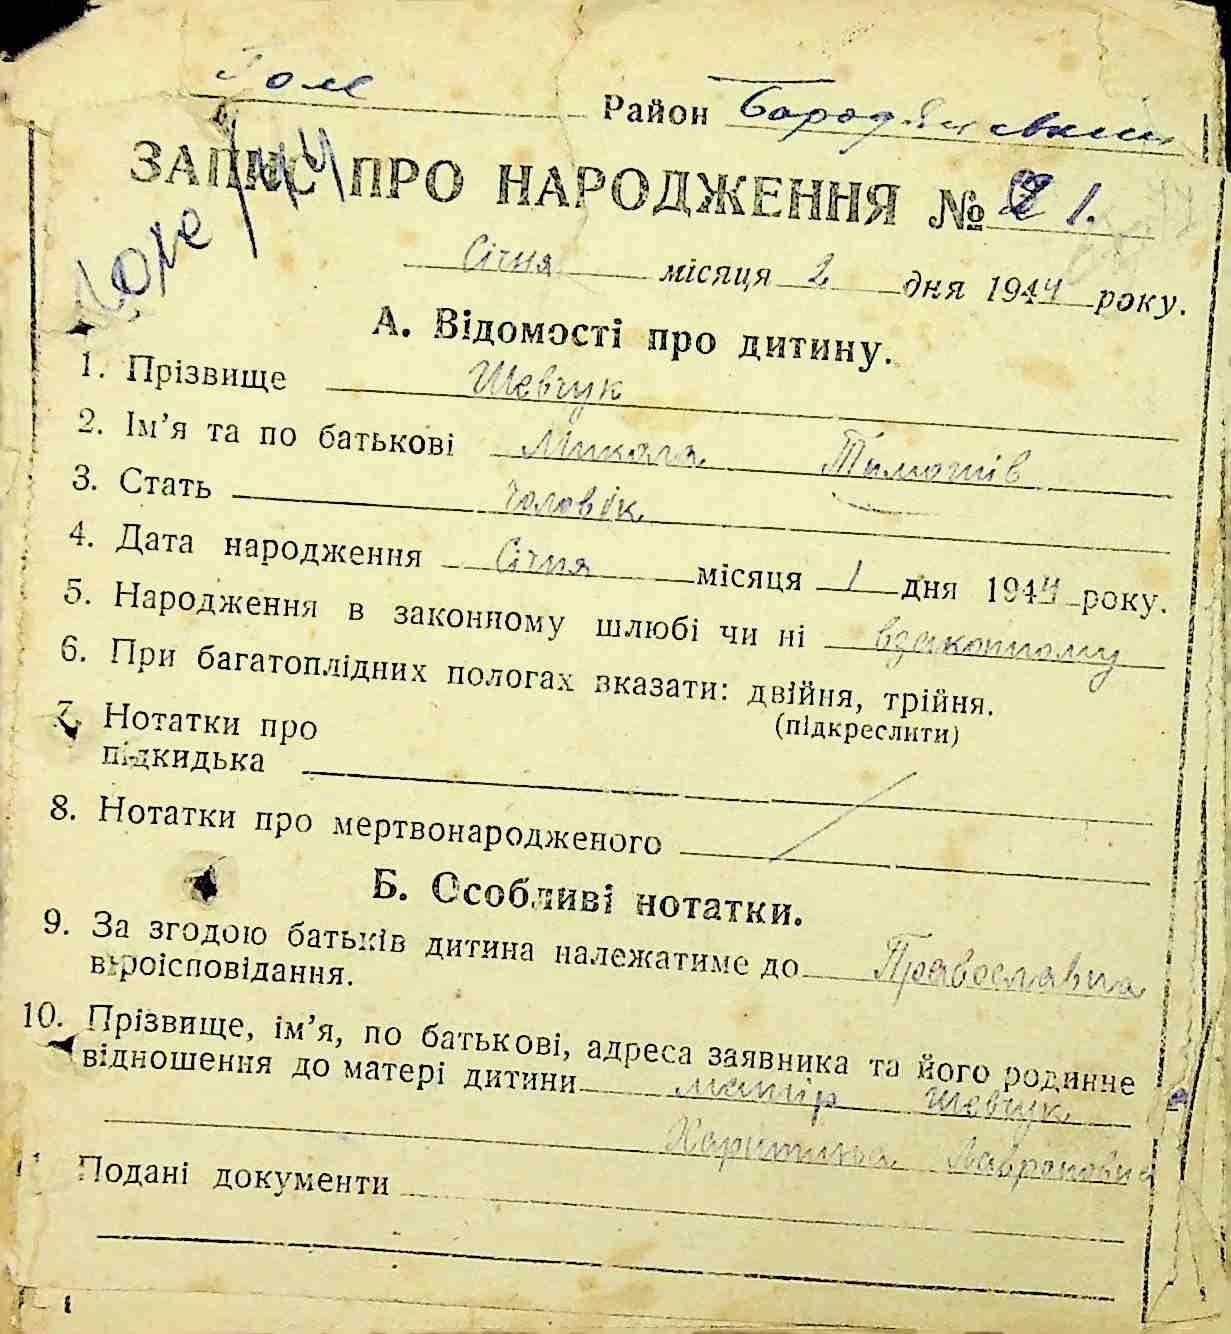 Район Бородянський
ЗАПИС ПРО НАРОДЖЕННЯ № 1.
Січня місяця 2 дня 1944 року.
А. Відомості про дитину.
1. Прізвище Шевчук
2. Ім’я та по батькові Микола Тимошів
3. Стать чоловік
4. Дата народження Січня місяця 1 дня 1944 року.
5. Народження в законному шлюбі чи ні взаконному
6. При багатоплідних пологах вказати: двійня, трійня.
(підкреслити)
7. Нотатки про
підкидька
8. Нотатки про мертвонародженого
Б. Особливі нотатки.
9. За згодою батьків дитина належатиме до Православна
віроісповідання.
10. Прізвище, ім’я, по батькові, адреса заявника та його родинне
відношення до матері дитини матір Шевчук
Харитина
Подані документи